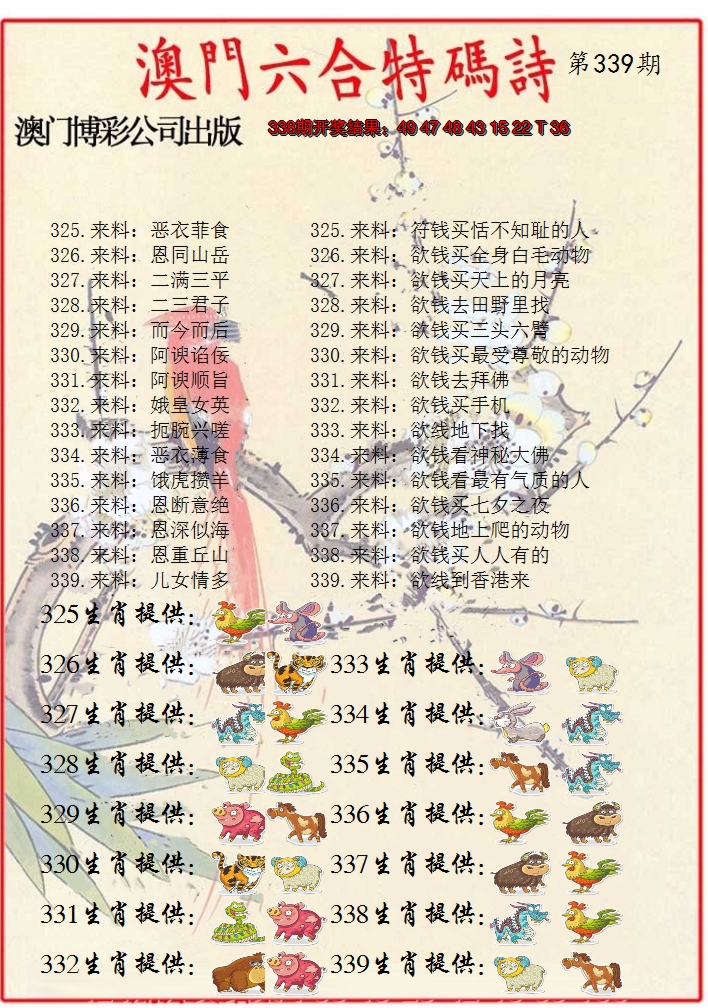 澳門六合特碼詩 第339期
澳门博彩公司出版 338期开奖结果：49 47 48 43 15 22 T 36
325.来料：恶衣菲食 325.来料：符钱买恬不知耻的人
326.来料：恩同山岳 326.来料：欲钱买全身白毛动物
327.来料：二满三平 327.来料：欲钱买天上的月亮
328.来料：二三君子 328.来料：欲钱去田野里找
329.来料：而今而后 329.来料：欲钱买三头六臂
330.来料：阿谀谄佞 330.来料：欲钱买最受尊敬的动物
331.来料：阿谀顺旨 331.来料：欲钱去拜佛
332.来料：娥皇女英 332.来料：欲钱买手机
333.来料：扼腕兴嗟 333.来料：欲线地下找
334.来料：恶衣薄食 334.来料：欲钱看神秘大佛
335.来料：饿虎攒羊 335.来料：欲钱看最有气质的人
336.来料：恩断意绝 336.来料：欲钱买七夕之夜
337.来料：恩深似海 337.来料：欲钱地上爬的动物
338.来料：恩重丘山 338.来料：欲钱买人人有的
339.来料：儿女情多 339.来料：欲线到香港来
325生肖提供：
326生肖提供： 333生肖提供：
327生肖提供： 334生肖提供：
328生肖提供： 335生肖提供：
329生肖提供： 336生肖提供：
330生肖提供： 337生肖提供：
331生肖提供： 338生肖提供：
332生肖提供： 339生肖提供：